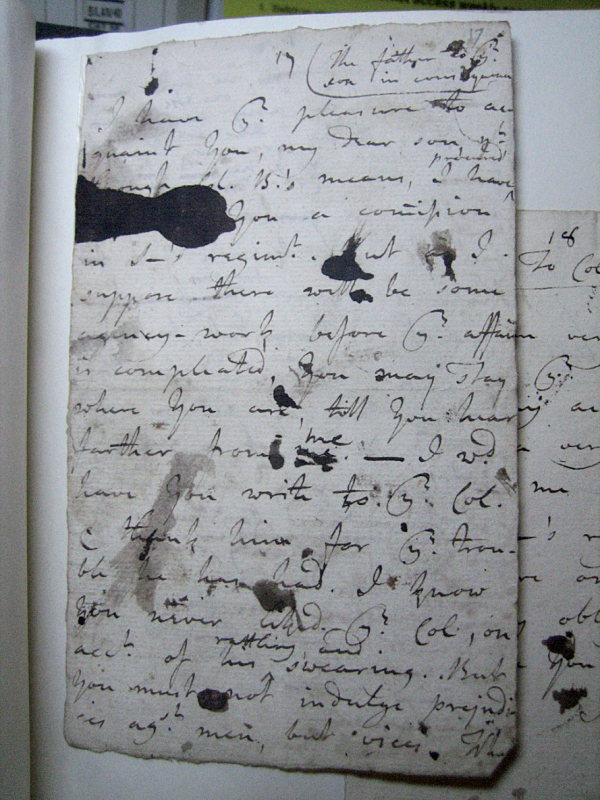 17
17 (The father to ye.
son in consequen
I have ye. pleasure to ac
quaint You, my dear son, yt.
procured
through Col. B.'s means, I have
You a comission
in S—'s regimt. . But as I
suppose there will be some
agency-work before ye. affair
is compleated, You may stay
where You are, till You hear
me
farther from — I wd.
have You write to ye. Col.
& thank him for ye. trou-
ble he has had. I know
You never liked ye. Col, on
rattling and
acct. of his swearing. But
You must not indulge prejudi
ces agst. men, but vices. Wh
18
To Col
ver
ye.
a ver
me
—'s r
obl
You